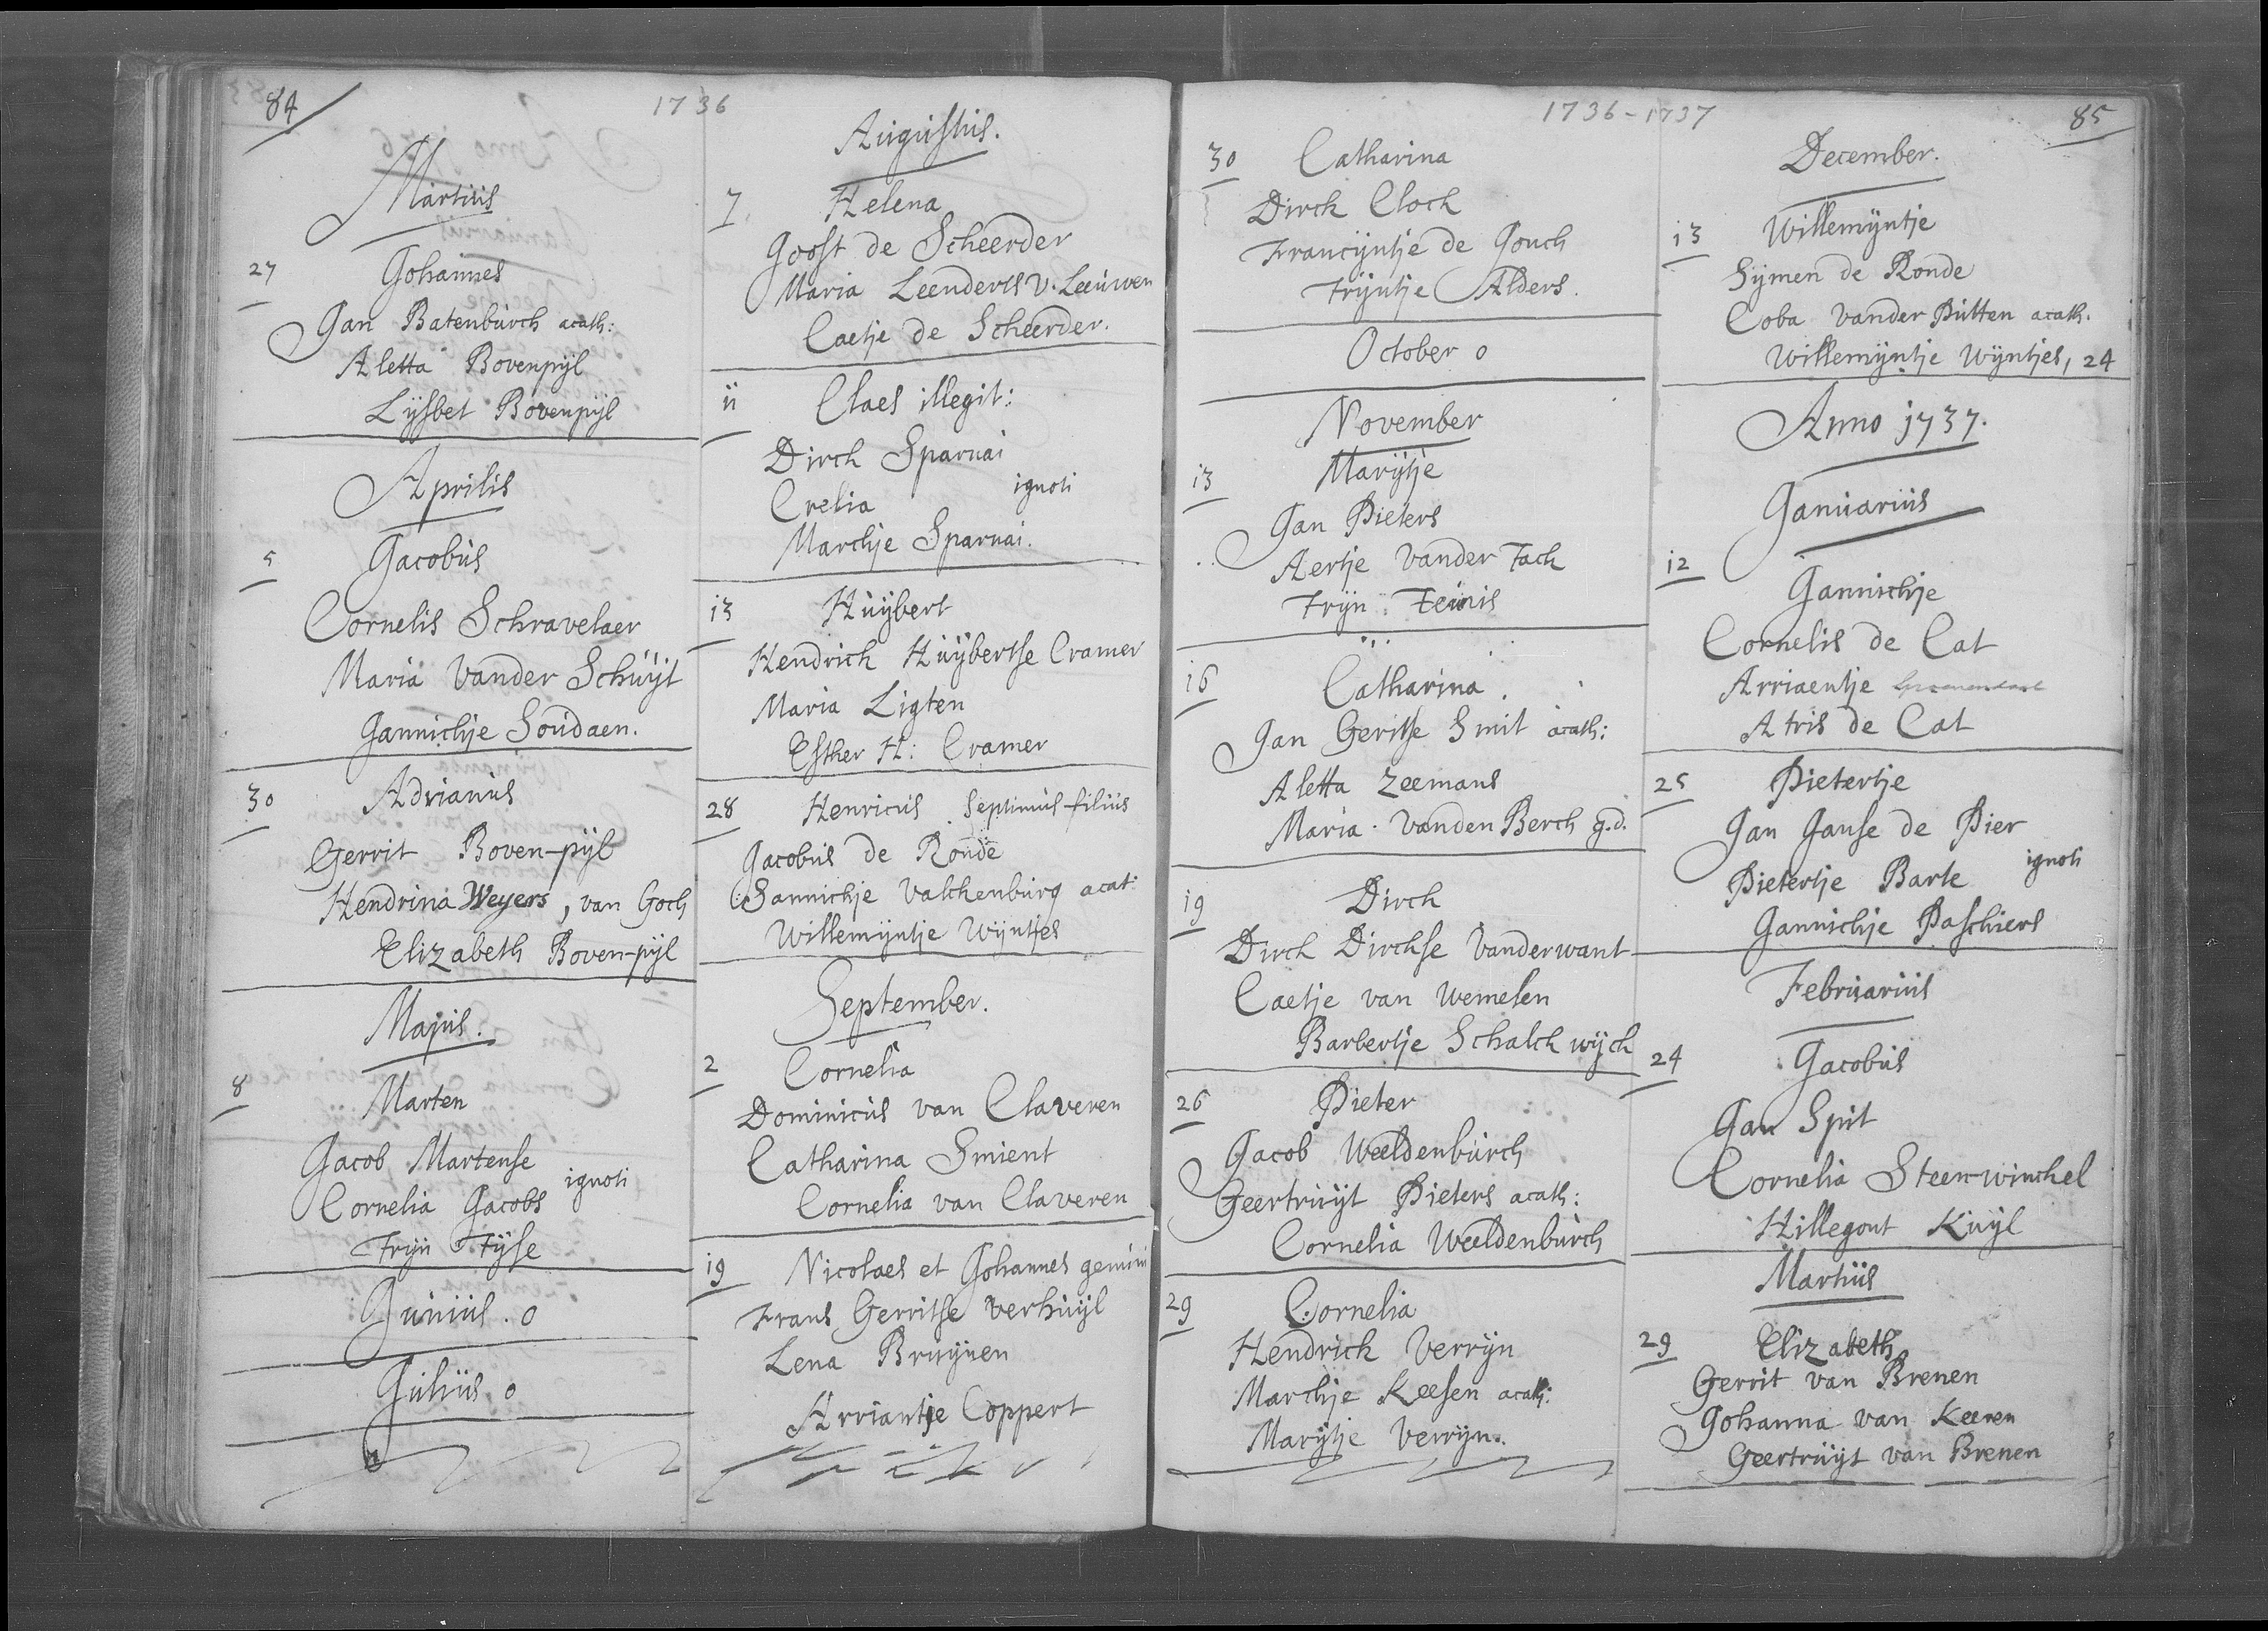 84
1736
Martius
27 Johannes
Jan Batenburch acath:
Aletta Bovenpijl
Lijsbet Bovenpijl
Aprilis
5 Jacobus
Cornelis Schravelaer
Maria Vander Schuijt
Jannichje Soudaen.
30 Adrianus
Gerrit Boven-pijl
Hendrina Weyers, van Goch
Elizabeth Boven-pijl
Majus.
8 Marten
Jacob Martense
ignoti
Cornelia Jacobs
Trijn Tijse
Junius. 0
Julius 0
Augustus.
7 Helena
Joost de Scheerder
Maria Leenderts v. Leeuwen
Caetje de Scheerder.
ii Claes illegit:
Dirck Sparnai
ignoti
Crelia
Marchje Sparnai.
13 Huijbert
Hendrick Huijbertse Cramer
Maria Ligten
Esther H: Cramer
28 Henricus septimus filius
Jacobus de Ronde
Sannichje Valckenburg acat:
Willemijntje Wijntjes
September.
2 Cornelia
Dominicus van Claveren
Catharina Smient
Cornelia van Claveren
19 Nicolaes et Johannes gemini
Frans Gerritse Verhuijl
Lena Bruijnen
Arriantje Coppert
1736-1737
85
30 Catharina
Dirck Clock
Francijntje de Jonch
Trijntje Alders.
October 0
November
13 Marijtje
Jan Pieters
Aertje Vander Tack
Trijn Teunis
16 Catharina.
Jan Geritse Smit acath:
Aletta Zeemans
Maria Vanden Berch g.d.
19 Dirck
Dirck Dirckse Vanderwant
Caetje van Wemelen
Barbertje Schalckwijck
26 Pieter
Jacob Weeldenburch
Geertruijt Pieters acath:
Cornelia Weeldenburch
29 Cornelia
Hendrick Verrijn
Marchje Keesen acath:
Marijtje Verrijn.
December.
13 Willemijntje
Sijmen de Ronde
Coba Vander Putten acath.
Willemijntje Wijntjes, 24
Anno 1737.
Januarius
12 Jannichje
Cornelis de Cat
Arriaentje Groenendael
Atris de Cat
25 Pietertje
Jan Janse de Pier
ignoti
Pietertje Barte
Jannichje Paschiers
Februarius
24 Jacobus
Jan Spit
Cornelia Steen-winckel
Hillegont Kuijl
Martius
29 Elizabeth
Gerrit van Brenen
Johanna van Keeren
Geertruijt van Brenen